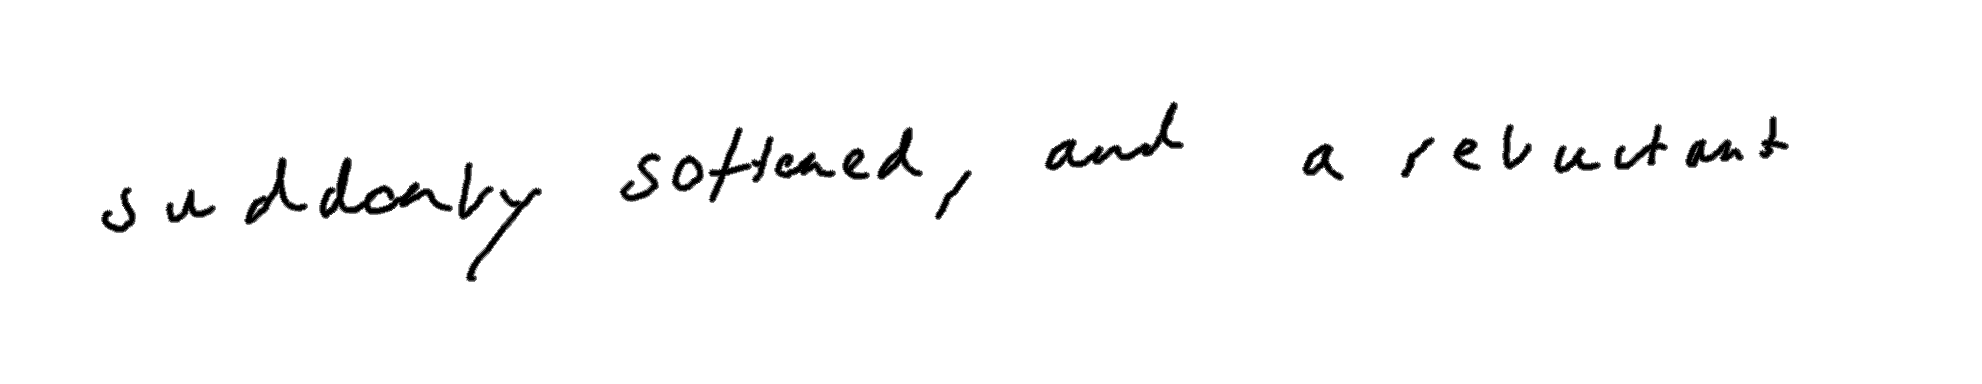 suddenly softened, and a reluctant